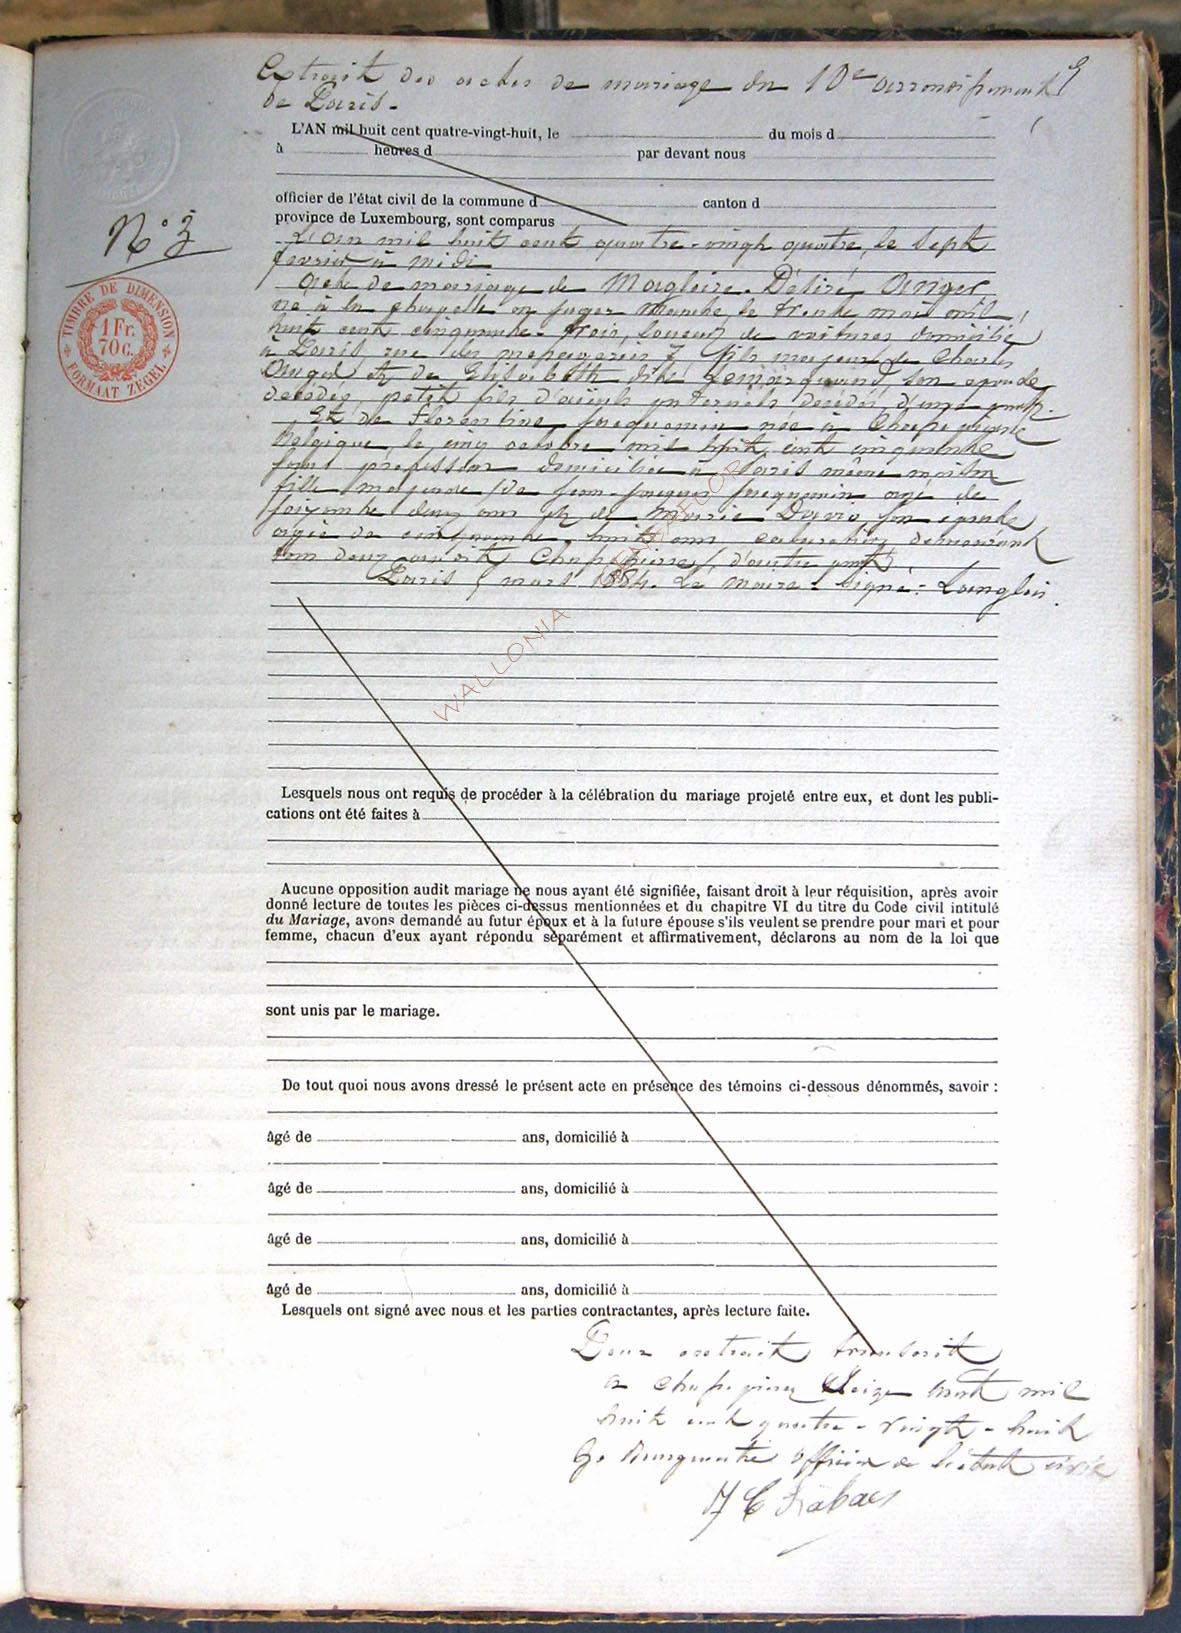 Extrait des actes de mariage du 10e arrondissement
de Paris.
9
L'AN mil huit cent quatre-vingt-huit, le du mois d
à heures d par devant nous
officier de l'état civil de la commune d canton d
province de Luxembourg, sont comparus
N° 3
TIMBRE DE DIMENSION
1 Fr.
70 C.
FORMAAT ZEGEL
L'an mil huit cent quatre-vingt quatre, le sept
février à midi
Acte de mariage de Magloire Désiré Anger
né à la chapelle en juger Manche le trente mai mil
huit cent cinquante-trois, loueur de voitures domicilié
à Paris, rue des 7 fils majeur de Charles
Anger et de Elisabeth son épouse
décédés, petit fils d'aïeuls paternels décédés, d'une part.
Et de Florentine Jacquemin née à Chepepierre
Belgique le cinq octobre mil huit cent cinquante
profession domiciliée à Paris même maison
fille majeure de Jean-Jacques Jacquemin âgé de
soixante deux ans et de Marie David son épouse
âgée de cinquante huit ans cultivateurs demeurant
tous deux au dit Chepepierre, d'autre part
Paris mars 1884. Le Maire - Signé: Langlois.
WALLONIA
Lesquels nous ont requis de procéder à la célébration du mariage projeté entre eux, et dont les publi-
cations ont été faites à
Aucune opposition audit mariage ne nous ayant été signifiée, faisant droit à leur réquisition, après avoir
donné lecture de toutes les pièces ci-dessus mentionnées et du chapitre VI du titre du Code civil intitulé
du Mariage, avons demandé au futur époux et à la future épouse s'ils veulent se prendre pour mari et pour
femme, chacun d'eux ayant répondu séparément et affirmativement, déclarons au nom de la loi que
sont unis par le mariage.
De tout quoi nous avons dressé le présent acte en présence des témoins ci-dessous dénommés, savoir :
âgé de ans, domicilié à
âgé de ans, domicilié à
âgé de ans, domicilié à
âgé de ans, domicilié à
Lesquels ont signé avec nous et les parties contractantes, après lecture faite.
Pour extrait transcrit
a seize août mil
huit cent quatre-vingt-huit
officier de l'état civil